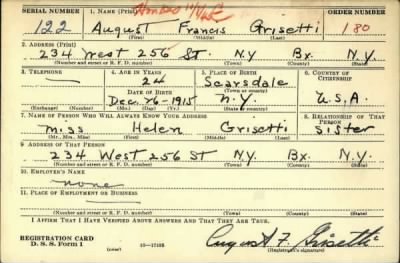 SERIAL NUMBER 1. NAME (Print) ORDER NUMBER
122 August Francis Grisetti 180
(First) (Middle) (Last)
2. ADDRESS (Print)
234 West 256 St N.Y Bx. N.Y.
(Number and street or R. F. D. number) (Town) (County) (State)
3. TELEPHONE 4. AGE IN YEARS 5. PLACE OF BIRTH 6. COUNTRY OF CITIZENSHIP
24 Scarsdale
DATE OF BIRTH (Town or county)
Dec. 26-1915 N.Y. U.S.A.
(Exchange) (Number) (Mo.) (Day) (Yr.) (State or country)
7. NAME OF PERSON WHO WILL ALWAYS KNOW YOUR ADDRESS 8. RELATIONSHIP OF THAT PERSON
Miss Helen Grisetti Sister
(Mr., Mrs., Miss) (First) (Middle) (Last)
9. ADDRESS OF THAT PERSON
234 West 256 St N.Y Bx. N.Y.
(Number and street or R. F. D. number) (Town) (County) (State)
10. EMPLOYER'S NAME
none
11. PLACE OF EMPLOYMENT OR BUSINESS
(Number and street or R. F. D. number) (Town) (County) (State)
I AFFIRM THAT I HAVE VERIFIED ABOVE ANSWERS AND THAT THEY ARE TRUE.
REGISTRATION CARD
D. S. S. Form 1 (over) 16—17105 August F. Grisetti
(Registrant's signature)